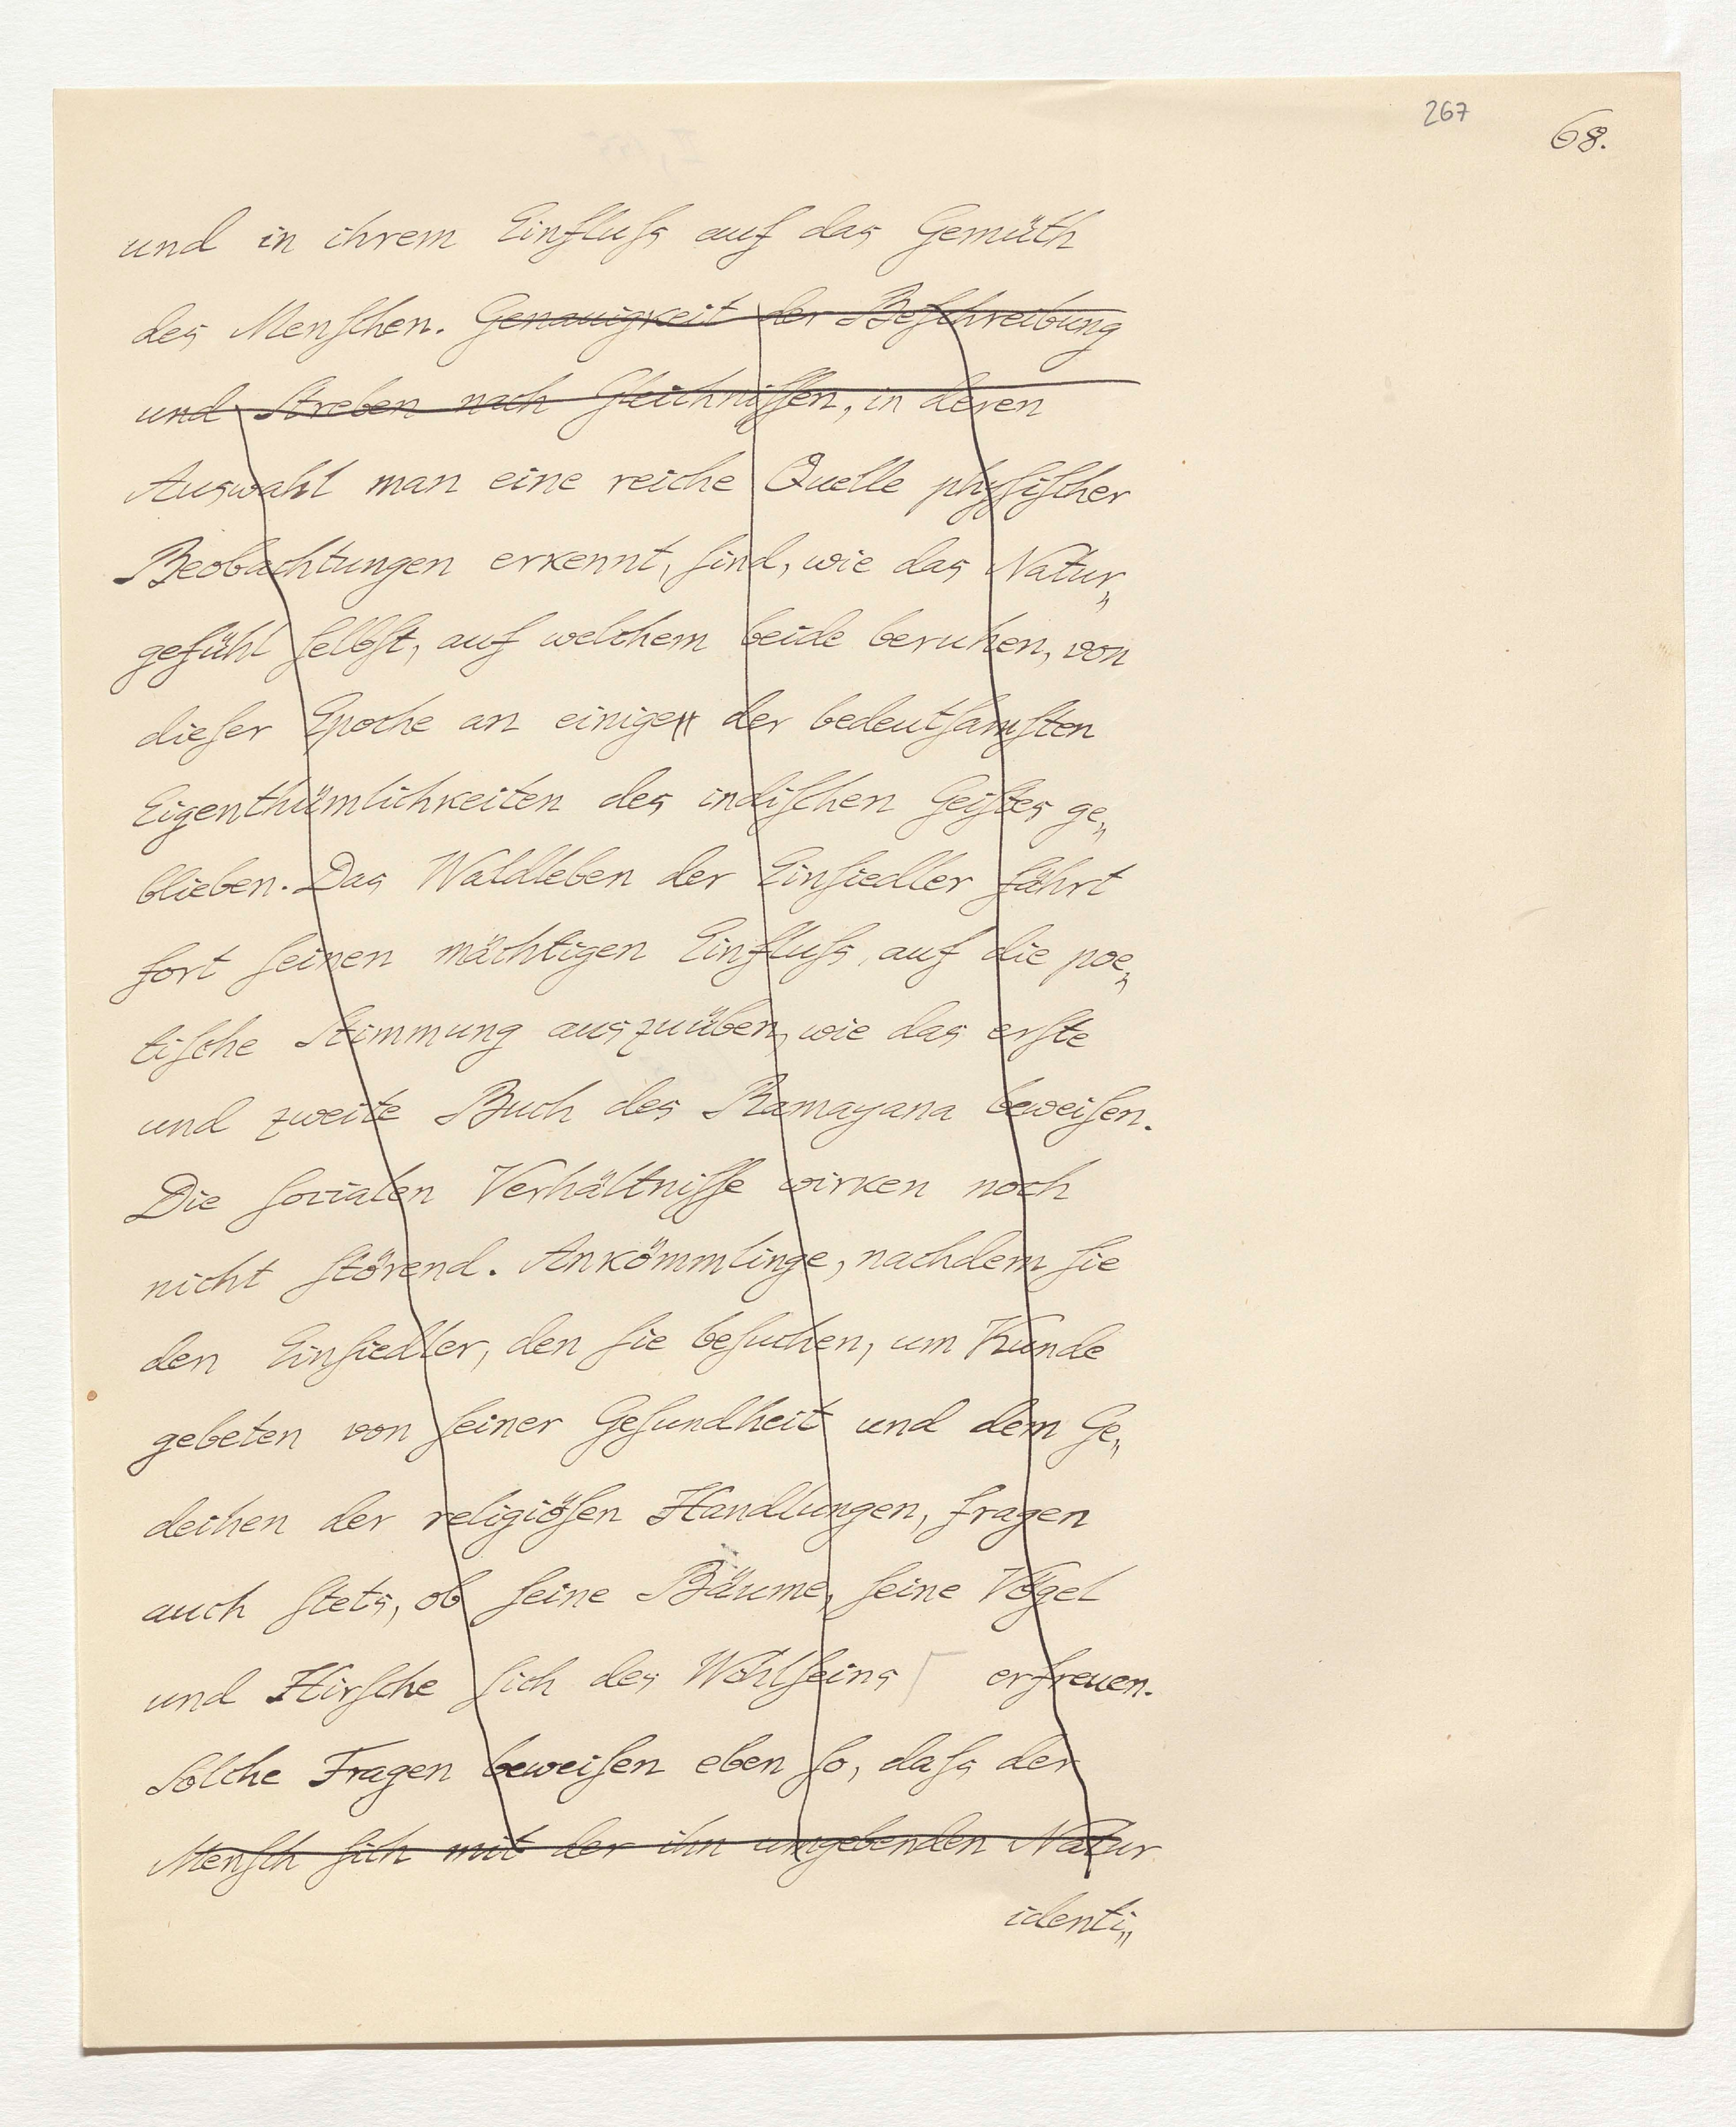 267
68.
und in ihrem Einfluſs auf das Gemüth
des Menſchen. Genauigkeit der Beſchreibung
und Streben nach Gleichniſſen, in deren
Auswahl man eine reiche Quelle phyſiſcher
Beobachtungen erkennt, ſind, wie das Natur„
gefühl ſelbſt, auf welchem beide beruhen, von
dieſer Epoche an einige der bedeutſamſten
Eigenthümlichkeiten des indiſchen Geiſtes ge„
blieben. Das Waldleben der Einſiedler fährt
fort ſeinen mächtigen Einfluſs, auf die poe„
tiſche Stimmung auszuüben, wie das erſte
und zweite Buch des Ramayana beweiſen.
Die ſocialen Verhältniſſe wirken noch
nicht ſtörend. Ankömmlinge, nachdem ſie
den Einſiedler, den ſie beſuchen, um Kunde
gebeten von ſeiner Geſundheit und dem Ge„
deihen der religiöſen Handlungen, fragen
auch ſtets, ob ſeine Bäume, ſeine Vögel
und Hirſche ſich des Wohlſeins erfreuen.
Solche Fragen beweiſen eben ſo, daſs der
Menſch ſich mit der ihn umgebenden Natur
identi„